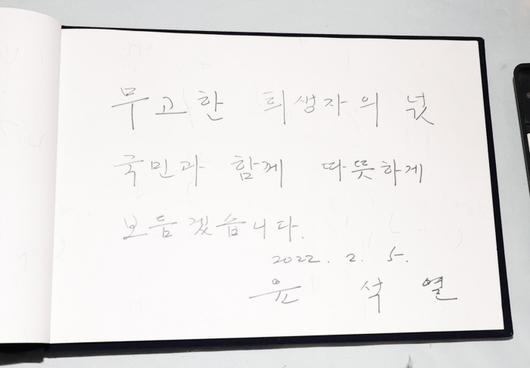 무고한 희생자의 넋
국민과 함께 따뜻하게
보듬겠습니다.
2022. 2. 5.
윤 석 열